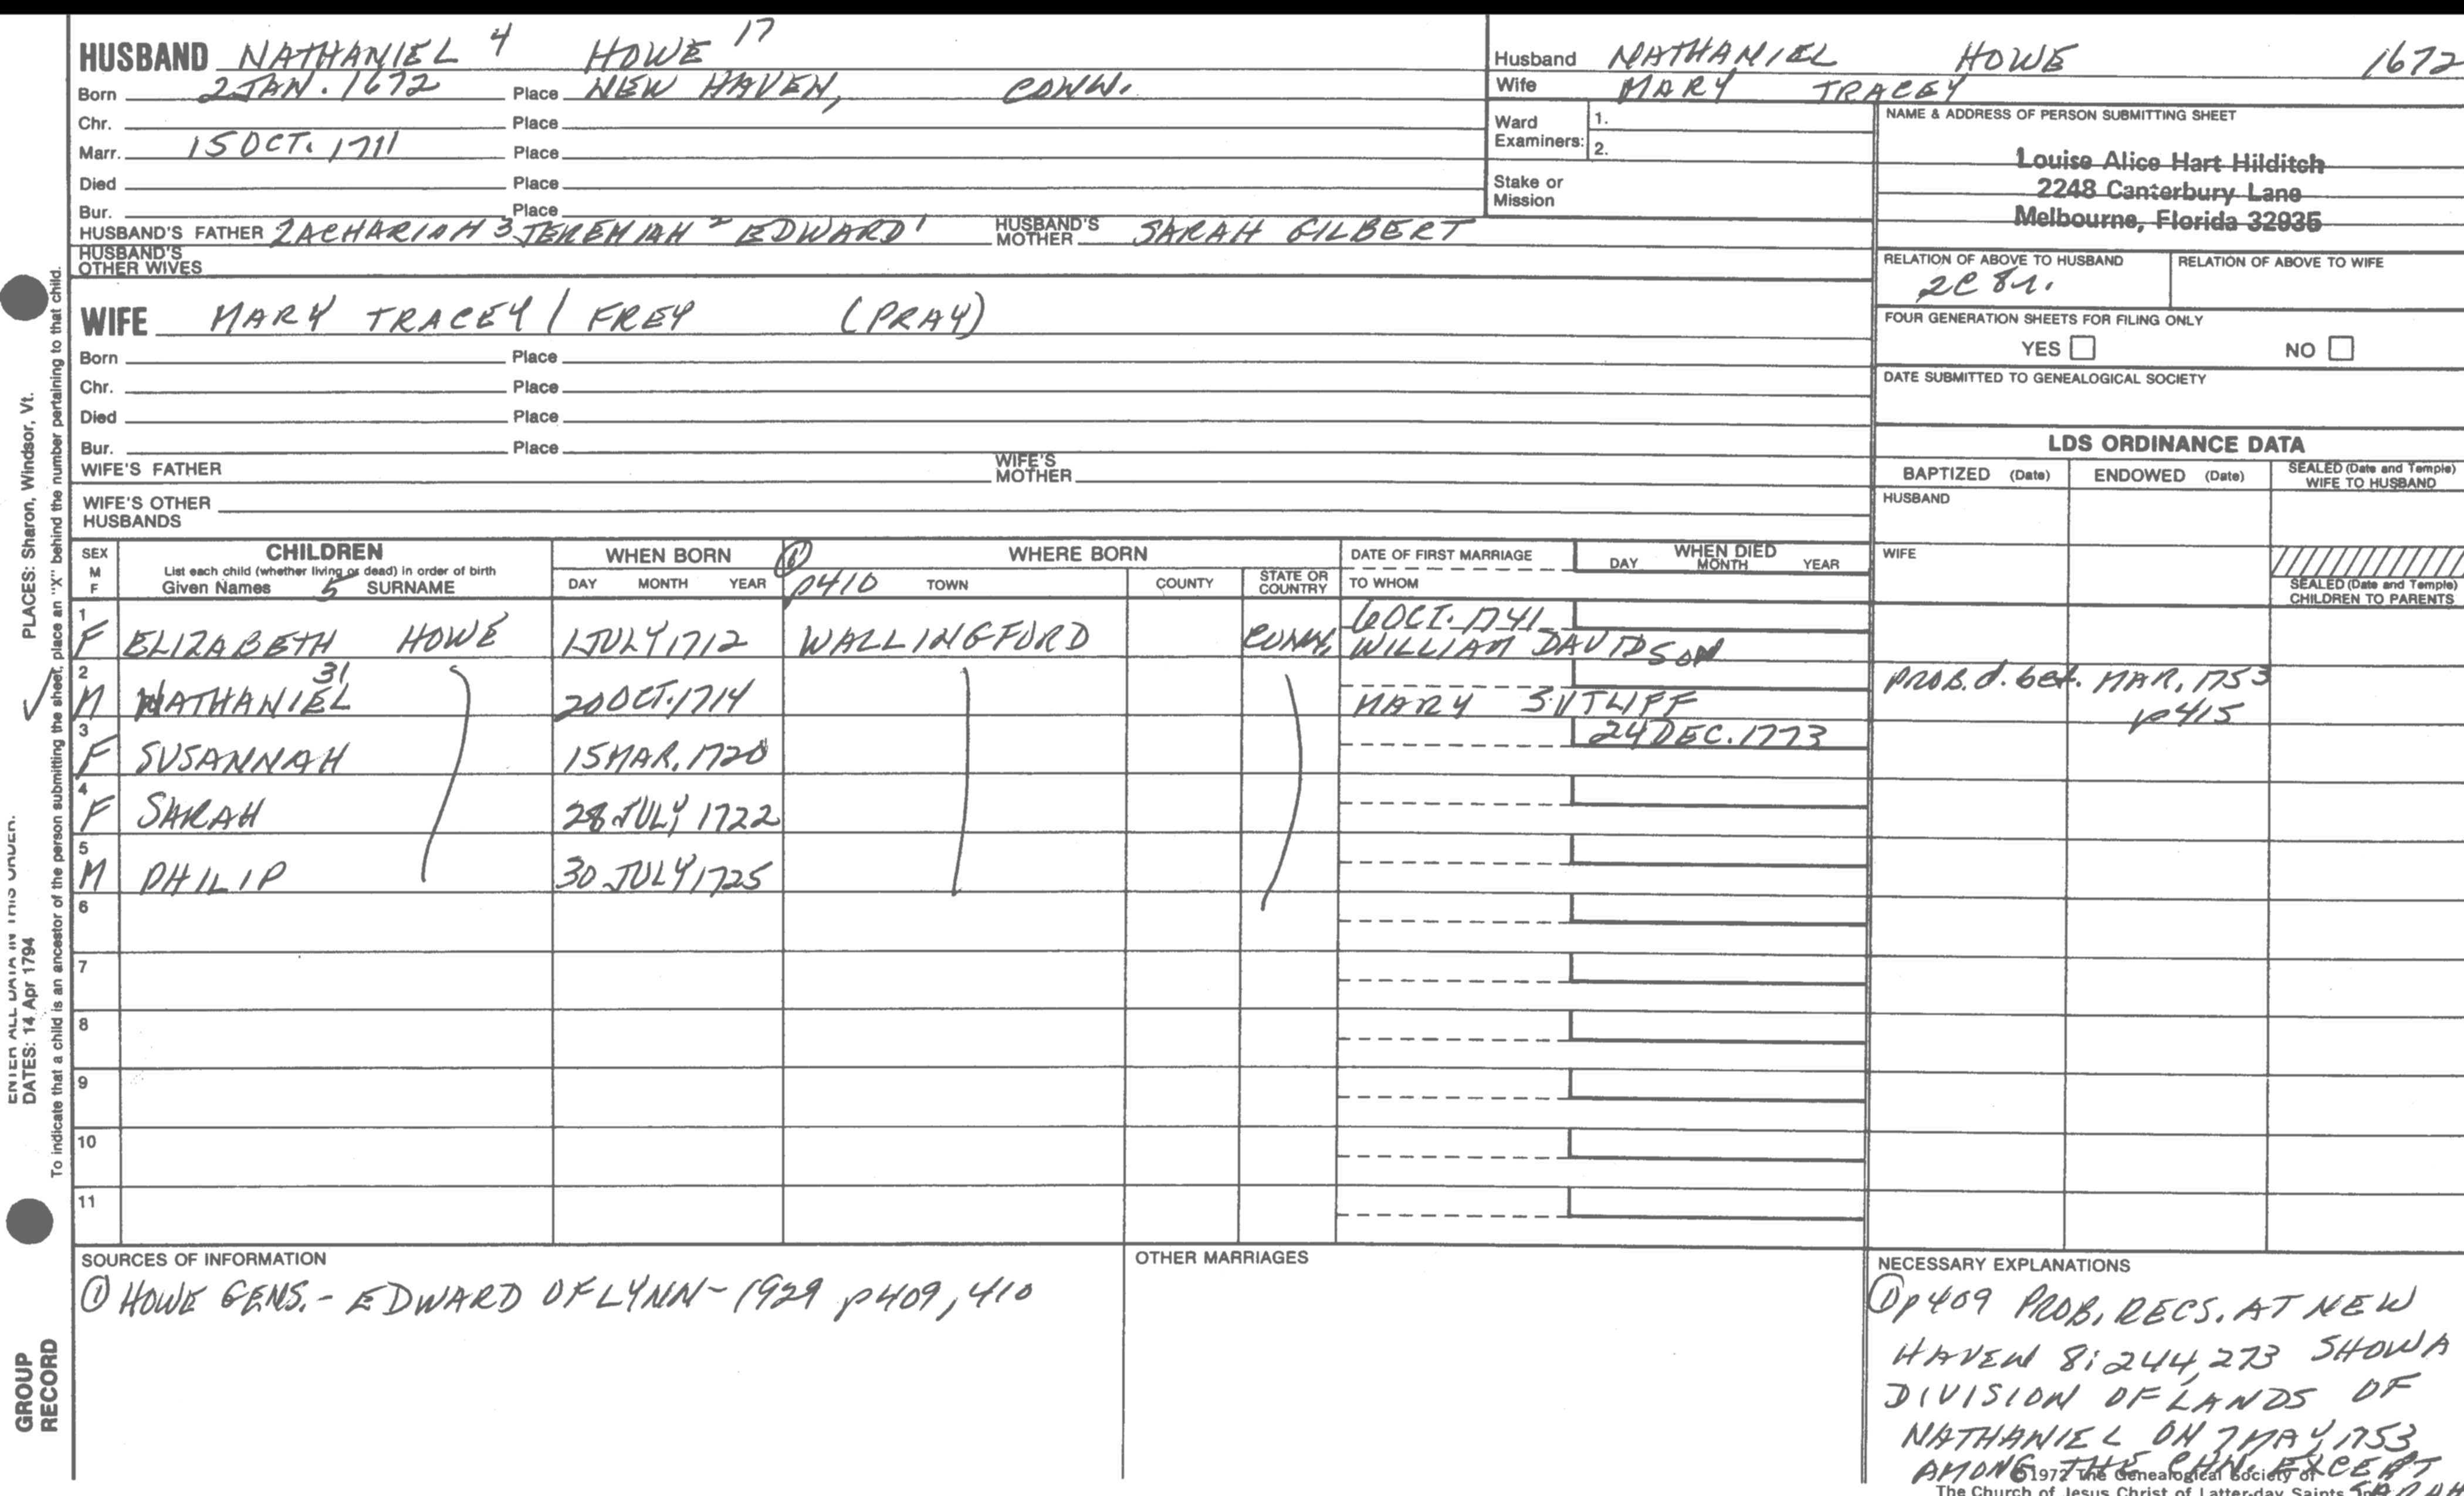 HUSBAND NATHANIEL 4 HOWE 17
Born 2 JAN. 1672 Place NEW HAVEN, CONN.
Chr. Place
Marr. 15 OCT. 1711 Place
Died Place
Bur. Place
HUSBAND'S FATHER ZACHARIAH 3 JEREMIAH 2 EDWARD 1 HUSBAND'S MOTHER SARAH GILBERT
HUSBAND'S OTHER WIVES
WIFE MARY TRACEY / FREY (PRAY)
Born Place
Chr. Place
Died Place
Bur. Place
WIFE'S FATHER WIFE'S MOTHER
WIFE'S OTHER HUSBANDS
Husband NATHANIEL HOWE 1672
Wife MARY TRACEY
Ward Examiners: 1.
2.
Stake or Mission
NAME & ADDRESS OF PERSON SUBMITTING SHEET
Louise Alice Hart Hilditch
2248 Canterbury Lane
Melbourne, Florida 32935
RELATION OF ABOVE TO HUSBAND RELATION OF ABOVE TO WIFE
2C 8r.
FOUR GENERATION SHEETS FOR FILING ONLY
YES NO
DATE SUBMITTED TO GENEALOGICAL SOCIETY
LDS ORDINANCE DATA
BAPTIZED (Date) ENDOWED (Date) SEALED (Date and Temple) WIFE TO HUSBAND
HUSBAND
WIFE
SEALED (Date and Temple) CHILDREN TO PARENTS
SEX M F CHILDREN WHEN BORN 1 WHERE BORN DATE OF FIRST MARRIAGE WHEN DIED
List each child (whether living or dead) in order of birth
Given Names 5 SURNAME DAY MONTH YEAR p410 TOWN COUNTY STATE OR COUNTRY TO WHOM DAY MONTH YEAR
1 6 OCT. 1741
F ELIZABETH HOWE 1 JULY 1712 WALLINGFORD CONN. WILLIAM DAVIDSON
2 31 PROB. d. bef. MAR. 1753
M NATHANIEL 20 OCT. 1714 MARY SUTLIFF p415
3 24 DEC. 1773
F SUSANNAH 15 MAR. 1720
4
F SARAH 28 JULY 1722
5
M PHILIP 30 JULY 1725
6
7
8
9
10
11
SOURCES OF INFORMATION
① HOWE GENS. - EDWARD OF LYNN - 1929 p409, 410
OTHER MARRIAGES
NECESSARY EXPLANATIONS
① p409 PROB. RECS. AT NEW
HAVEN 8:244, 273 SHOW A
DIVISION OF LANDS OF
NATHANIEL ON 7 MAY 1753
AMONG THE CHN. EXCEPT
SARAH
©1972 The Genealogical Society of
The Church of Jesus Christ of Latter-day Saints
PLACES: Sharon, Windsor, Vt.
To indicate that a child is an ancestor of the person submitting the sheet, place an "X" behind the number pertaining to that child.
ENTER ALL DATA IN THIS ORDER:
DATES: 14 Apr 1794
GROUP
RECORD